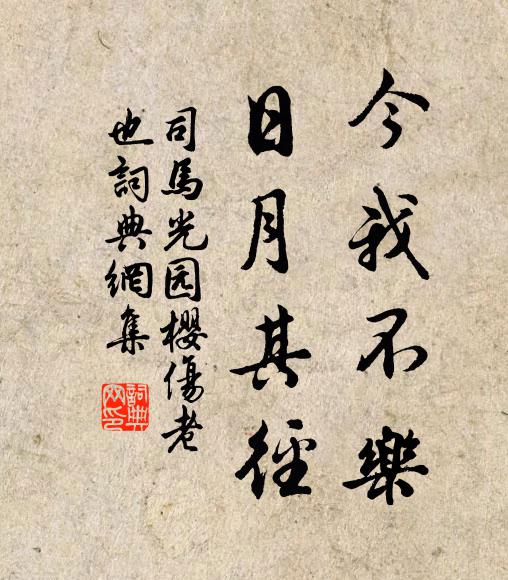 今我不樂
日月其徑
司馬光园櫻傷老
也詞典網集
詞典
网印